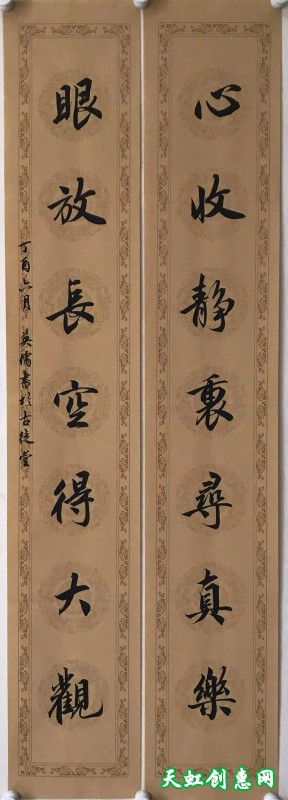 心收静裏尋真樂
眼放長空得大觀
丁酉六月英儒書於古徒堂
天虹创惠网